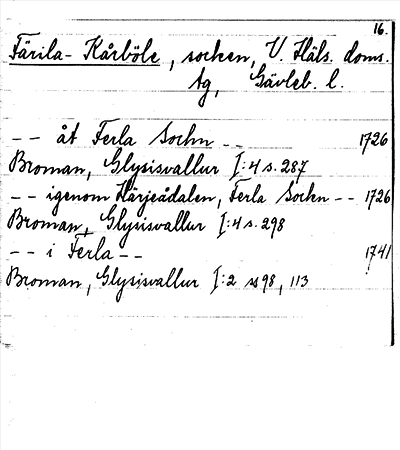 16.
Färila-Kårböle, socken, V. Häls. doms.
tg, Gävleb. l.
-- åt Ferla Sochn -- 1726
Broman, Glysisvallur I:4 s. 287
-- igenom Härjeådalen, Ferla Sochn -- 1726
Broman, Glysisvallur I:4 s. 298
-- i Ferla -- 1741
Broman, Glysisvallur I:2 ss 98, 113